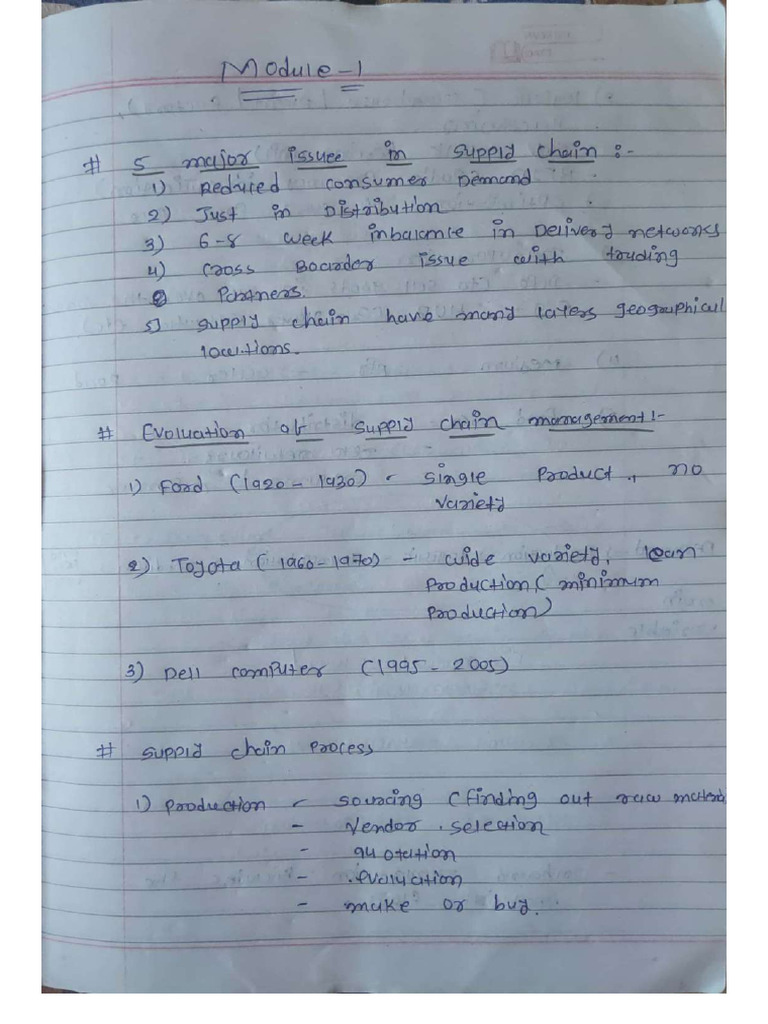 Module-1
# 5 major issuee in supply chain :-
1) Reduced consumer Demand
2) Just in Distribution
3) 6-8 week inbalance in Delivery networks
4) cross Boarder issue with trading
Partners.
5) supply chain have many layers geographical
locations.
# Evaluation of supply chain management :-
1) Ford (1920 - 1930) - single Product, no
variety
2) Toyota (1960-1970) - wide variety, lean
Production ( minimum
Production)
3) Dell computer (1995 - 2005)
# supply chain Process
1) Production - sourcing (finding out raw
- Vendor selection
- quotation
- Evaluation
- make or buy.